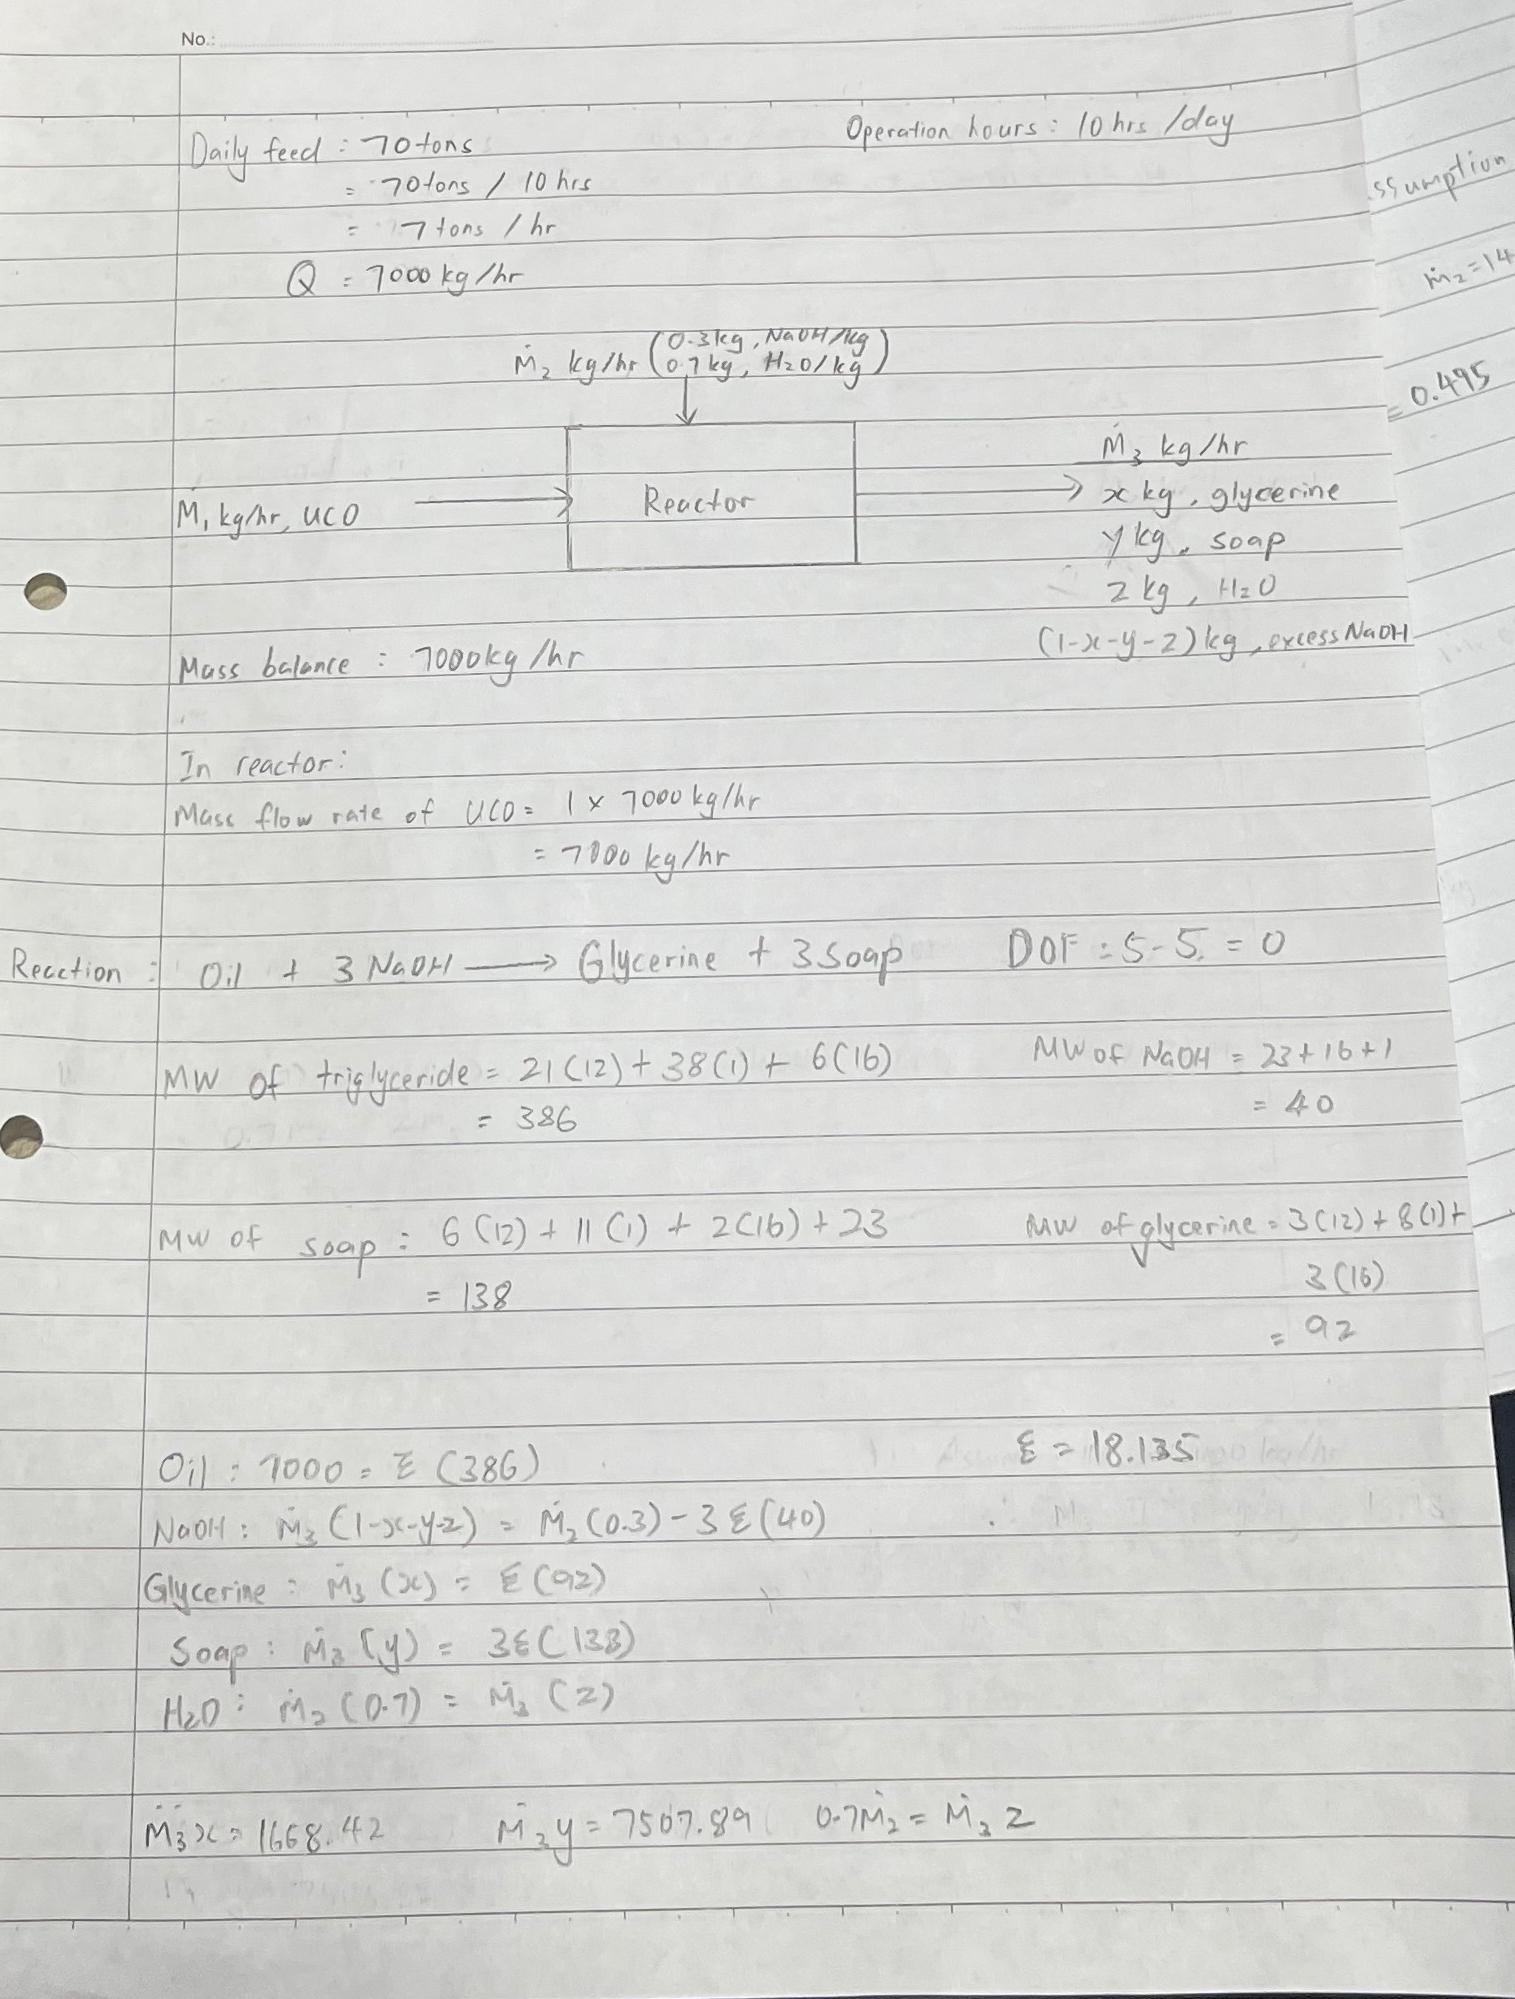 No.:
Daily feed : 70 tons
Operation hours : 10 hrs /day
= 70 tons / 10 hrs
= 7 tons / hr
Q = 7000 kg/hr
ssumption
ṁ₂ = 14
= 0.495
Ṁ₂ kg/hr (0.3 kg, NaOH/kg
0.7 kg, H₂O/kg)
Ṁ₁ kg/hr, UCO
Reactor
Ṁ₃ kg/hr
x kg, glycerine
y kg, soap
z kg, H₂O
(1-x-y-z) kg, excess NaOH
Mass balance : 7000 kg/hr
In reactor:
Mass flow rate of UCO = 1 x 7000 kg/hr
= 7000 kg/hr
Reaction : Oil + 3 NaOH → Glycerine + 3 Soap
DOF : 5-5 = 0
MW of triglyceride = 21(12) + 38(1) + 6(16)
= 386
MW of NaOH = 23+16+1
= 40
MW of soap : 6(12) + 11(1) + 2(16) + 23
= 138
MW of glycerine = 3(12) + 8(1) +
3(16)
= 92
Oil : 7000 = Ɛ (386)
Ɛ = 18.135
NaOH : Ṁ₃ (1-x-y-z) = Ṁ₂ (0.3) - 3Ɛ(40)
Glycerine : Ṁ₃ (x) = Ɛ(92)
Soap : Ṁ₃ (y) = 3Ɛ(138)
H₂O : Ṁ₂ (0.7) = Ṁ₃ (z)
Ṁ₃x = 1668.42
Ṁ₃y = 7507.89
0.7Ṁ₂ = Ṁ₃ z